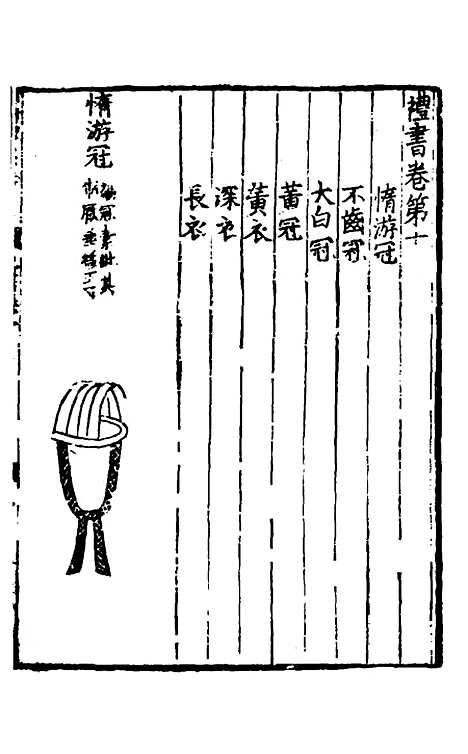 禮書卷第十
惰游冠
不齒冠
大白冠
黃冠
黃衣
深衣
長衣
惰游冠
垂緌五寸